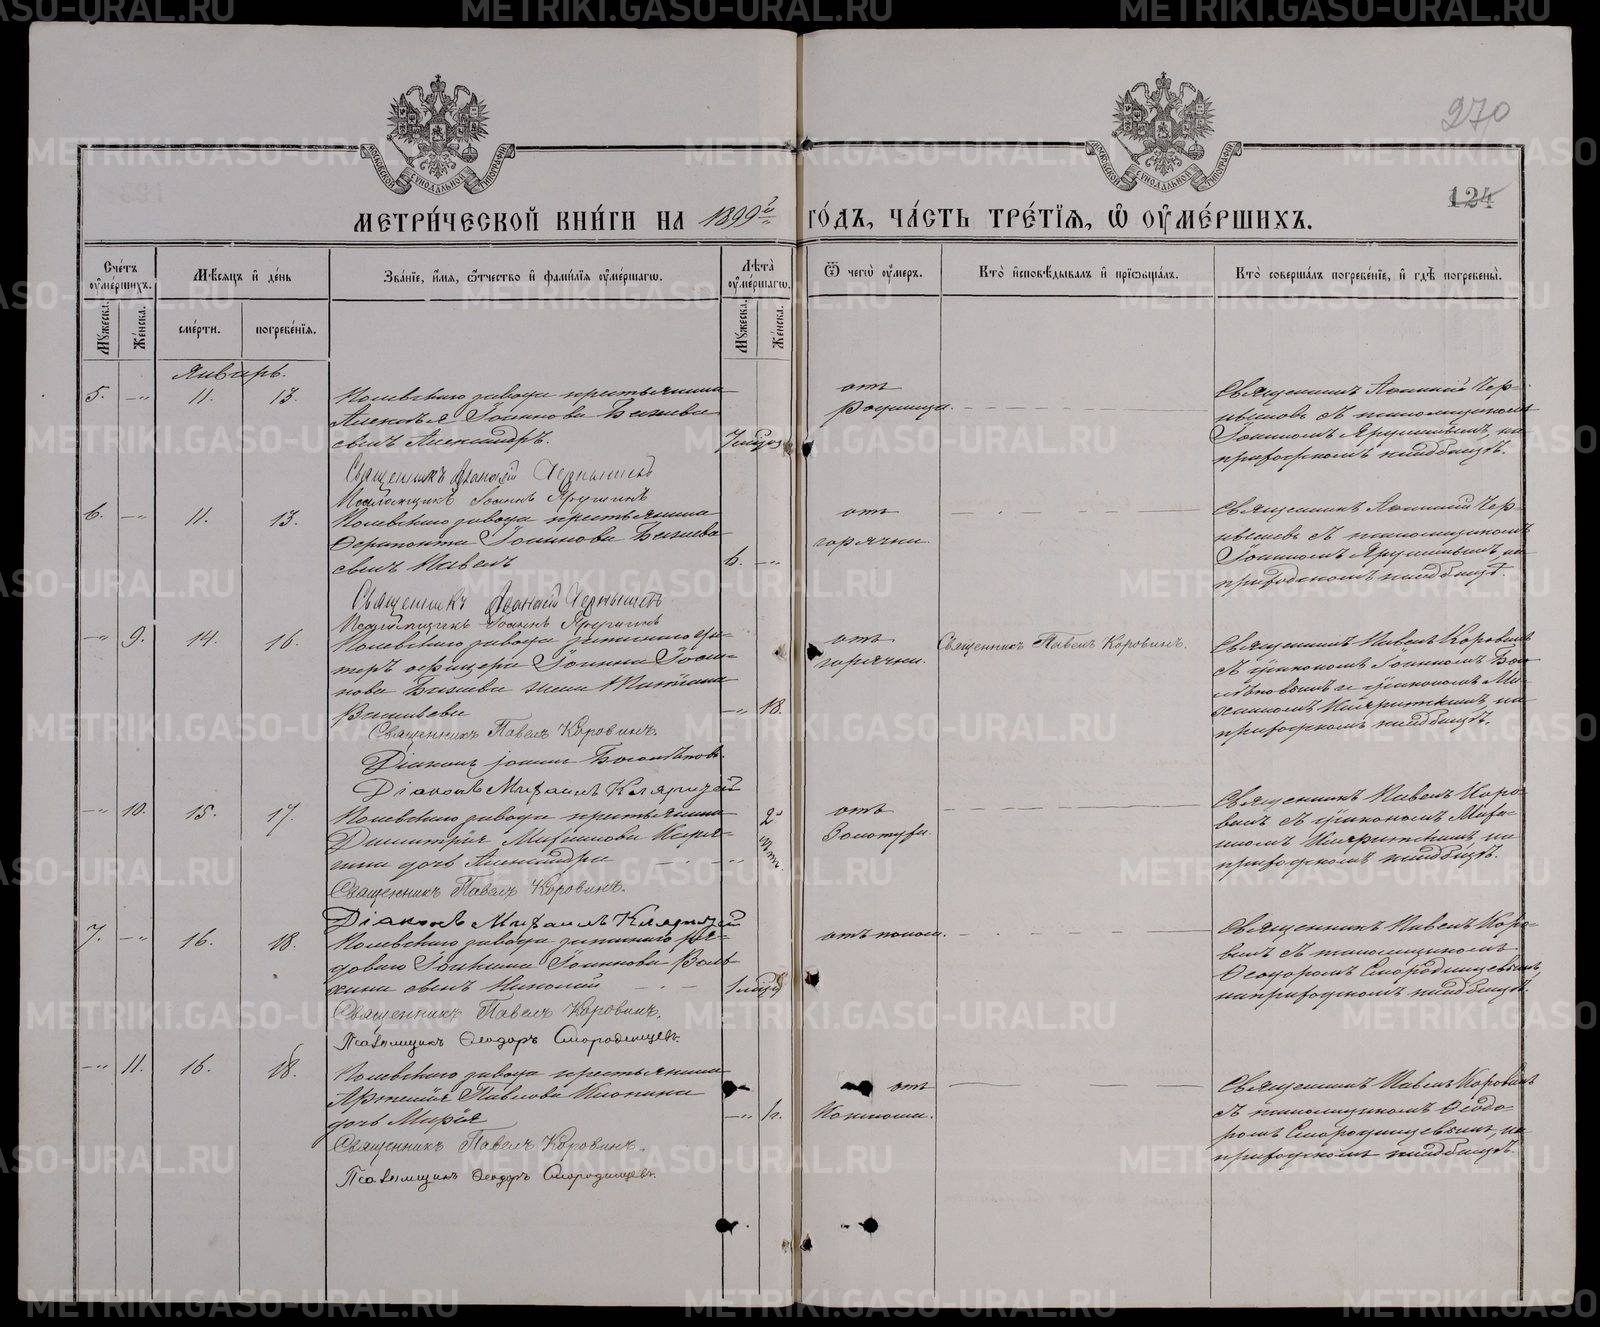 270
124
МОСКОВСКОЙ СѴНОДАЛЬНОЙ ТИПОГРАФІИ
МОСКОВСКОЙ СѴНОДАЛЬНОЙ ТИПОГРАФІИ
МЕТРИ́ЧЕСКОЙ КНИ́ГИ НА 1899й ГО́ДЪ, ЧА́СТЬ ТРЕ́ТІѦ, Ѡ ОУМЕ́РШИХЪ.
Сче́тъ оумершихъ.
Мужеска.
Же́нска.
Мѣсяцъ и де́нь
сме́рти.
погребе́нїѧ.
Зва́нїе, и́мѧ, ѻ́тчество и фами́лїѧ оуме́ршагѡ.
Лѣта̀ оуме́ршагѡ.
Мужеска.
Же́нска.
Ѿ чегѡ̀ оу́меръ.
Кто̀ и҆сповѣ́дывалъ и҆ прїѡбща́лъ.
Кто̀ соверша́лъ погребе́нїе, и҆ гдѣ̀ погребены̀.
Январь.
5. -"- 11. 13.
Полевскаго завода крестьянина
Алексѣя Іоаннова Бажева
сынъ Александръ.
отъ
Родимца.
Священникъ Афанасій Чер-
нышевъ съ псаломщикомъ
Іоанномъ Яружинымъ, на
приходскомъ кладбищѣ.
Священникъ Афанасій Чернышевъ
Псаломщикъ Іоаннъ Яружинъ
6. -"- 11. 13.
Полевскаго завода крестьянина
Ферапонта Іоаннова Бажева
сынъ Павелъ
6. -"-
отъ
горячки.
Священникъ Афанасій Чер-
нышевъ съ псаломщикомъ
Іоанномъ Яружинымъ на
приходскомъ кладбищѣ.
Священникъ Афанасій Чернышевъ
Псаломщикъ Іоаннъ Яружинъ
-"- 9. 14. 16.
Полевскаго завода
теръ офицера Іоанна Іоан-
нова Бажева жена
Васильева
-"- 18.
отъ
горячки.
Священникъ Павелъ Коровинъ.
Священникъ Павелъ Коровинъ
съ діакономъ Іоанномъ Бого-
лѣповымъ и діакономъ Ми-
хаиломъ на
приходскомъ кладбищѣ.
Священникъ Павелъ Коровинъ.
Діаконъ Іоаннъ Боголѣповъ.
Діаконъ Михаилъ
-"- 10. 15. 17.
Полевскаго завода крестьянина
Димитрія
дочь Александра
отъ
Золотухи.
Священникъ Павелъ Коро-
винъ съ діакономъ Миха-
иломъ на
приходскомъ кладбищѣ.
Священникъ Павелъ Коровинъ.
Діаконъ Михаилъ
7. -"- 16. 18.
Полевскаго завода запаснаго ря-
доваго Іоанна Іоаннова
сынъ Николай
отъ поноса.
Священникъ Павелъ Коро-
винъ съ псаломщикомъ
Ѳеодоромъ Смородинцевымъ,
на приходскомъ кладбищѣ.
Священникъ Павелъ Коровинъ.
Псаломщикъ Ѳеодоръ Смородинцевъ.
-"- 11. 16. 18.
Полевскаго завода крестьянина
Артемія Павлова
дочь Марія
отъ
Священникъ Павелъ Коровинъ
съ псаломщикомъ Ѳеодо-
ромъ Смородинцевымъ, на
приходскомъ кладбищѣ.
Священникъ Павелъ Коровинъ.
Псаломщикъ Ѳеодоръ Смородинцевъ.
METRIKI.GASO-URAL.RU